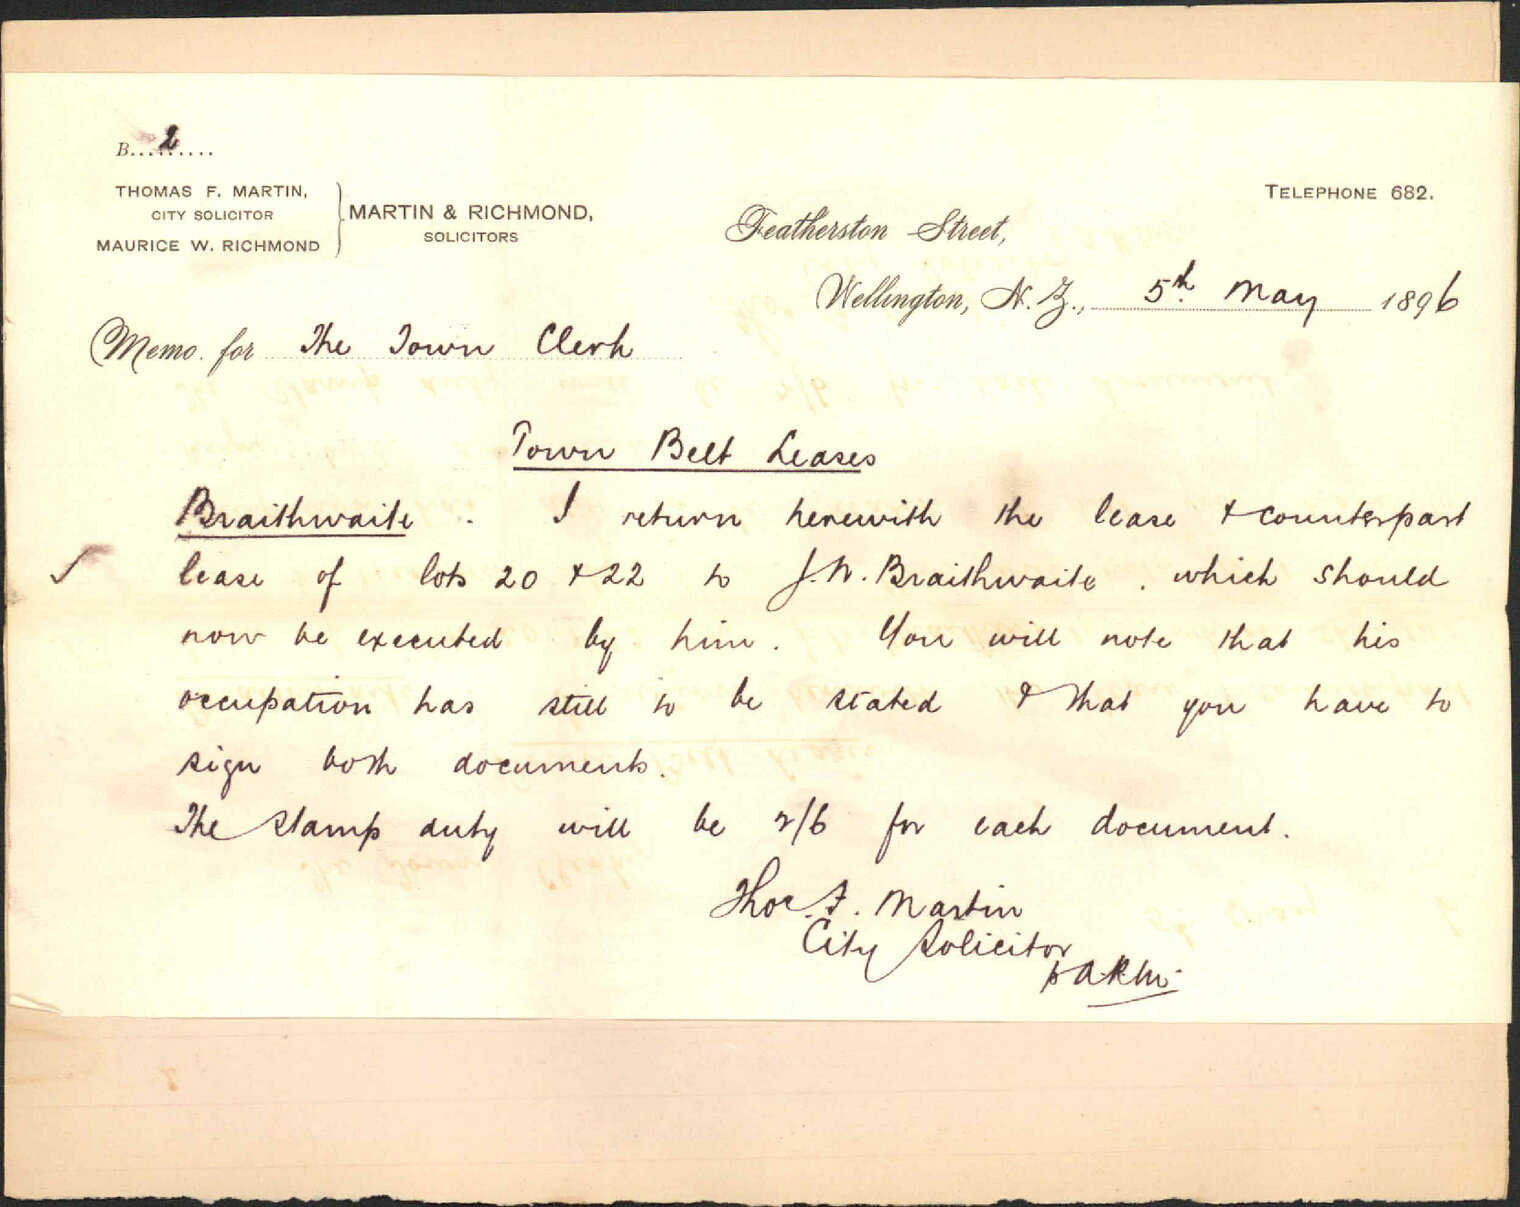 B...2......
THOMAS F. MARTIN,
CITY SOLICITOR
MAURICE W. RICHMOND
MARTIN & RICHMOND,
SOLICITORS
TELEPHONE 682.
Featherston Street,
Wellington, N. Z., 5th May 1896
Memo. for The Town Clerk
Town Belt Leases
Braithwaite. I return herewith the lease & counterpart
lease of lots 20 & 22 to J. W. Braithwaite, which should
now be executed by him. You will note that his
occupation has still to be stated & that you have to
sign both documents.
The stamp duty will be 2/6 for each document.
Thos. F. Martin
City Solicitor